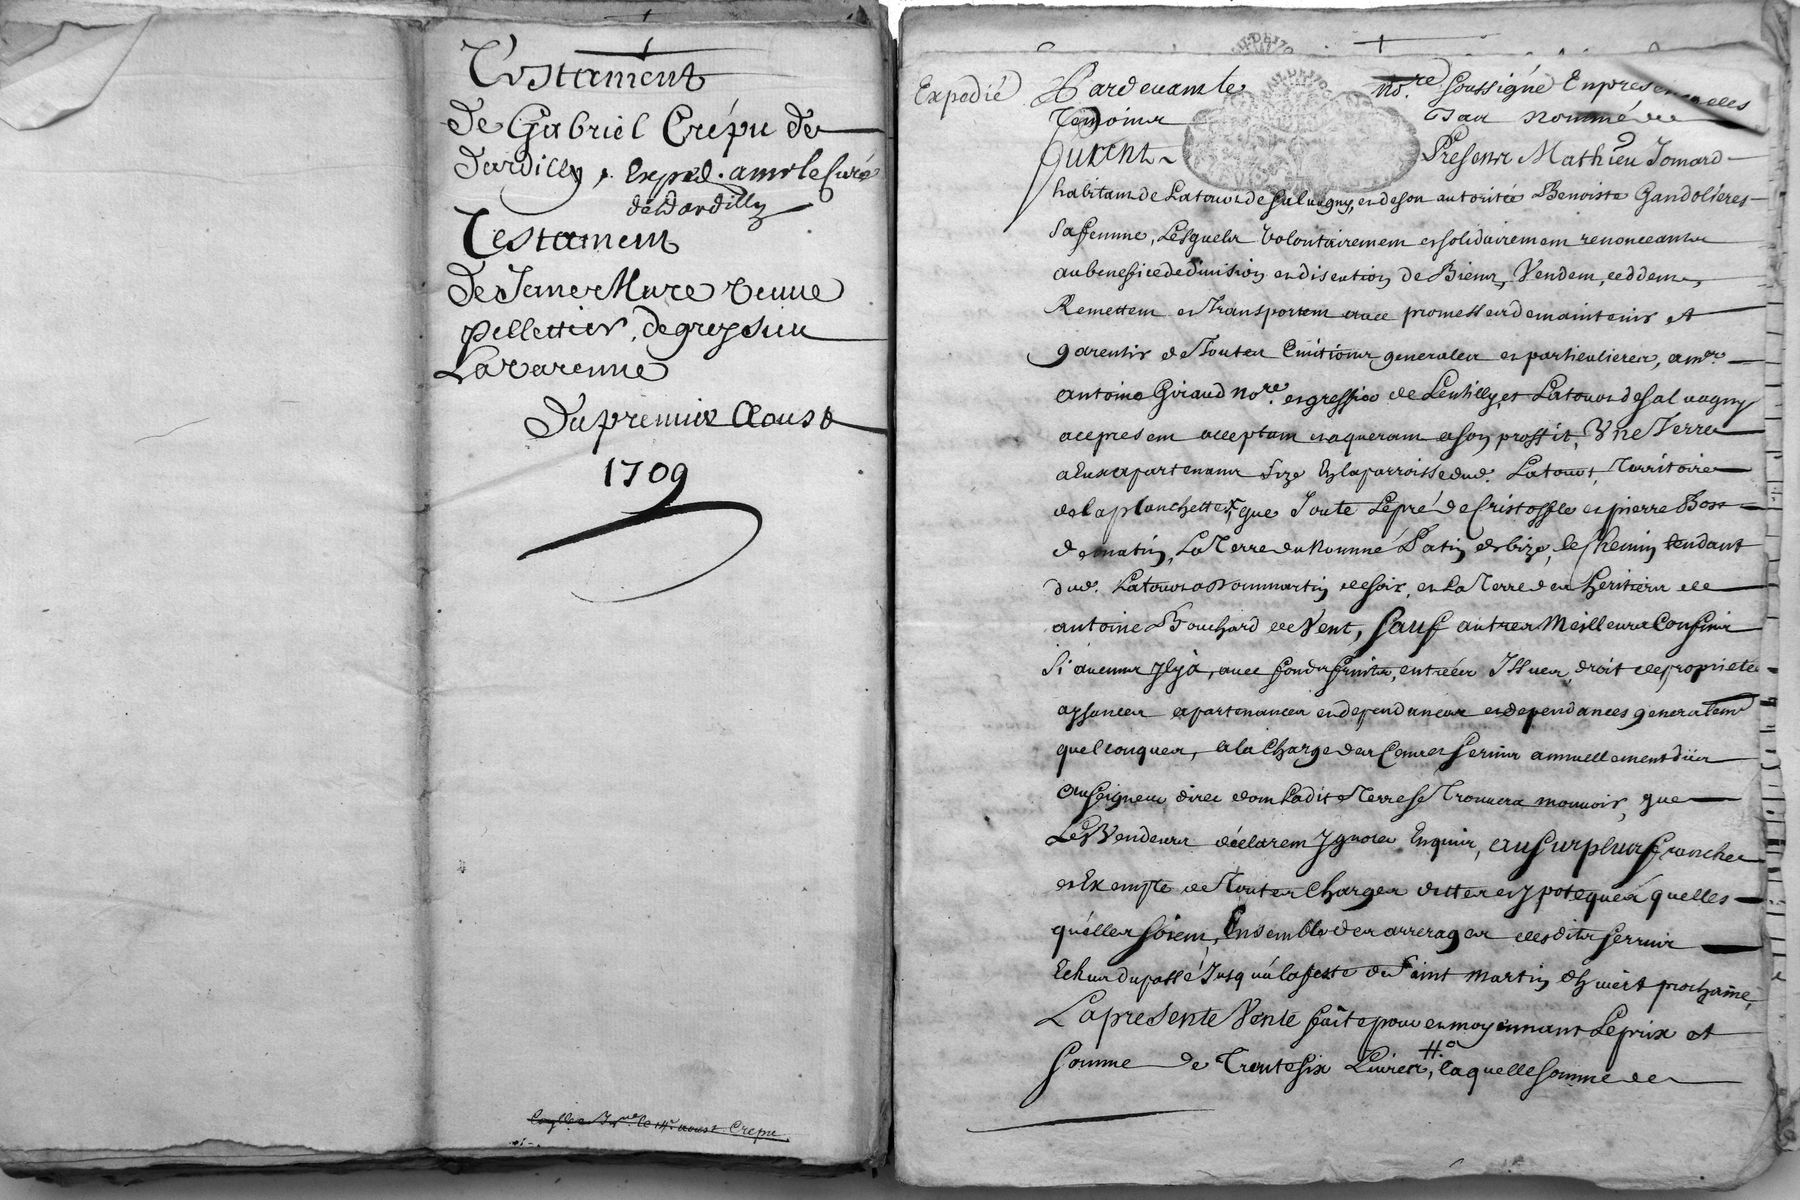 Testament
De Gabriel Crépu de
Dardilly, Exped. a mr le Curé
de Dardilly
Testament
De Jane Mure veuve
pelletier, de greysieu
Lavarenne
Du premier Aoust
1709
le 14e aoust Crepu
Expedié
Pardevant le no.re soussigné En presence des
Temoins Bas nommé
furent Presens Mathieu Jomard
habitant de Latour de Salvagny, et de son autoritée Benoiste Gandolieres
Sa femme, Lesquels Volontairement et solidairement renonceants
au benefice de division et discution de Biens, Vendent, ceddent,
Remettent et Transportent avec promesses de maintenir et
garentir de Toutes Evitions generales et particulieres, a mr
antoine Giraud No.re et greffier de Lentilly, et Latour de Salvagny
acepresent acceptant et aquerant a son proffit, Une Terre
a Eux apartenant Size En la parroisse dud. Latour, Territoire
de la planchette, que Joute Le pré de Cristoffle et pierre Bon
de matin, La Terre du Nommé Patin de bize, le Chemin tendant
dud. Latour a Dommartin de soir, et La Terre des Heritiers de
antoine Bouchard de Vent, Sauf autres Meilleurs Confins
Si aucuns Il y a, avec fonds fruits, entrées Issues, droit de proprieté
aysances apartenances et dependances et dependances generalemt
quelconques, a la Charge des Cens et Servis annuellement dûs
au Seigneur direc dont Ladite Terre se Trouvera mouvoir, que
Les Vendeurs déclarent Ignorer Enquis, au Surplus franche
et Exempte de Toutes Charges dettes et ypoteques quelles
qu'elles soient, Ensemble des arrerages desdits Servis
Echus du passé Jusqu'à la feste de Saint Martin d'hivert prochaine,
La presente Vente faite pour et moyennant Le prix et
Somme de Trentesix Livres, laquelle somme de